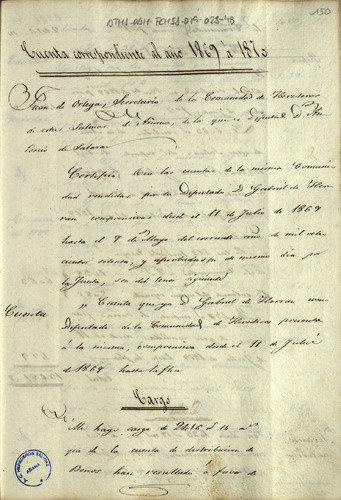 ATHA-DAH-FCHSA-019-023-48
150
Cuenta correspondiente al año 1869 á 1870
Juan de Ortega, Secretario de la Comunidad de Herederos
de estas Salinas de Añana, de la que es Diputado D. An-
tonio de Salazar
Certifico: Que las cuentas de la misma Comuni-
dad rendidas por su Diputado D. Gabriel de Her-
rán comprensivas desde el 11 de Julio de 1869
hasta el 7 de Mayo del corriente año de mil ocho
cientos setenta, y aprobadas en el mismo dia por
la Junta, son del tenor siguiente
Cuenta
" Cuenta que yo D. Gabriel de Herran como
Diputado de la Comunidad de Herederos presento
á la misma, comprensiva desde el 11 de Julio
de 1869 hasta la fha
Cargo
Me hago cargo de 2416 14
que de la cuenta de distribucion de
Bonos hace resultado á favor de
A.G. HEREDEROS SALINAS
AÑANA